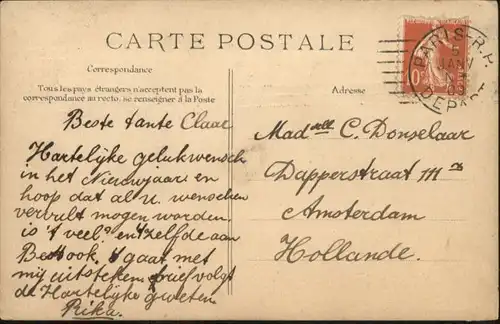 CARTE POSTALE
Correspondance
Tous les pays étrangers n'acceptent pas la
correspondance au recto, se renseigner à la Poste
Adresse
PARIS-R.P.
5
JANV
DEPART
Beste tante Claar
Hartelijke gelukwensch
in het Nieuwjaar en
hoop dat al u wenschen
vervult mogen worden.
is 't veel? en 't zelfde aan
Bet ook, 't gaat met
mij uitsteken, brief volgt
de Hartelijke groeten
Rika.
Madelle C. Donselaar
Dapperstraat 111
Amsterdam
Hollande.